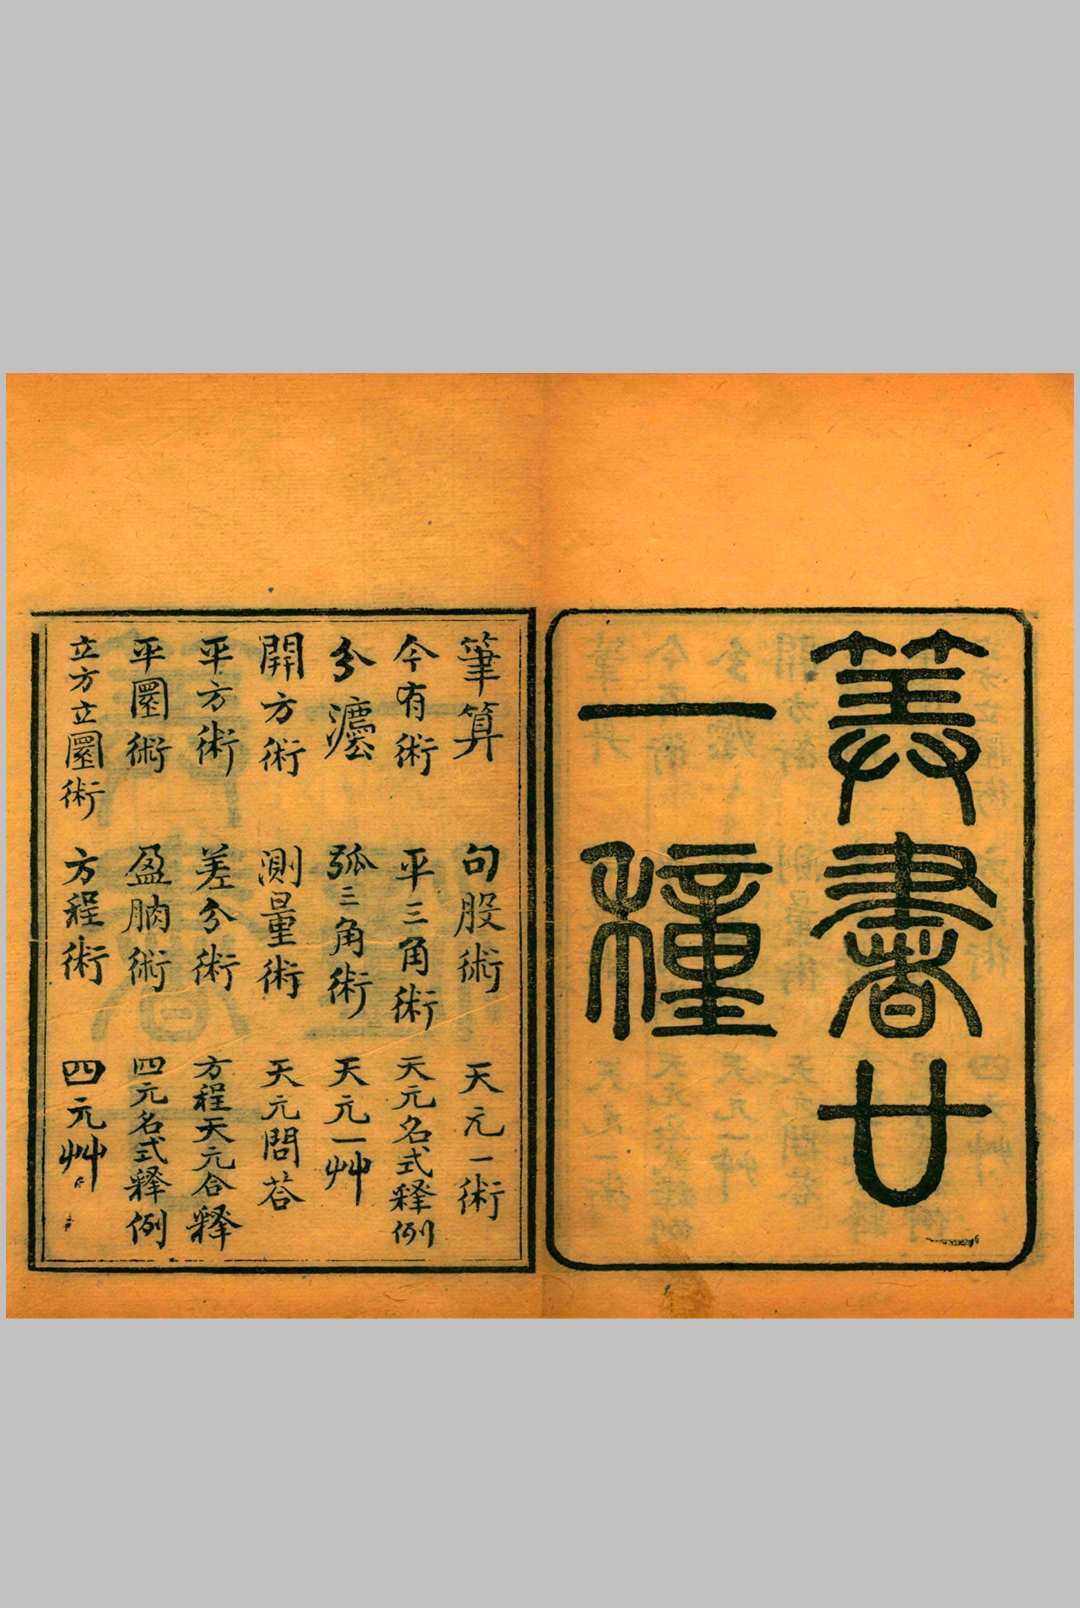 筭書廿
一種
筆算　句股術　天元一術
今有術　平三角術　天元名式釋例
分灋　弧三角術　天元一艸
開方術　測量術　天元問荅
平方術　差分術　方程天元合釋
平圜術　盈朒術　四元名式釋例
立方立圜術　方程術　四元艸